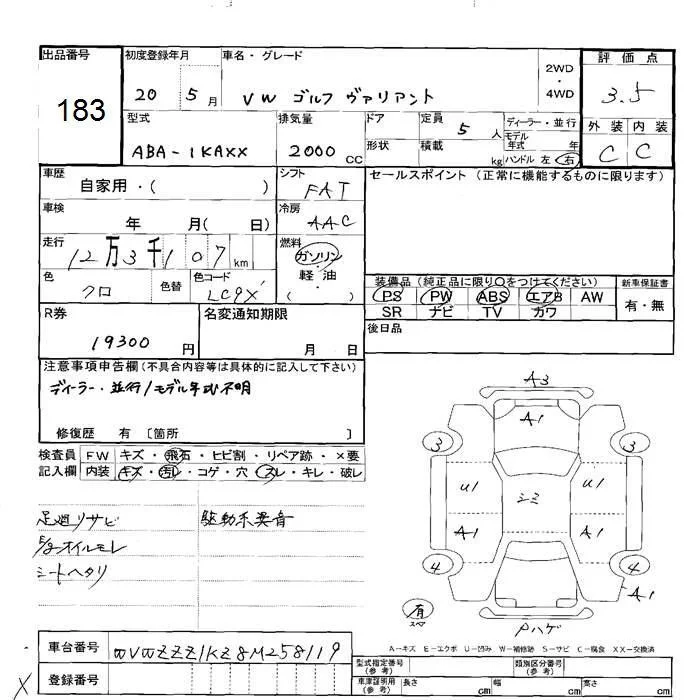 出品番号
183
初度登録年月
20 5月
車名・グレード
VW ゴルフ ヴァリアント
2WD
・
4WD
評価点
3.5
外装 内装
C C
型式
ABA-1KAXX
排気量
2000cc
ドア
形状
定員 5人
積載 kg
ディーラー・並行
モデル年式 年
ハンドル 左 右
車歴
自家用・( )
シフト
FAT
セールスポイント(正常に機能するものに限ります)
車検
年 月( 日)
冷房
AAC
走行
12万3千107km
燃料
ガソリン
・
軽油
( )
色
クロ
色替
色コード
LC9X
装備品(純正品に限り○をつけてください)
PS PW ABS エアB AW
SR ナビ TV カワ
新車保証書
有・無
R券
19300円
名変通知期限
月 日
後日品
注意事項申告欄(不具合内容等は具体的に記入して下さい)
ディーラー・並行/モデル年式不明
修復歴 有 〔箇所 〕
検査員記入欄
FW キズ・飛石・ヒビ割・リペア跡・×要
内装 キズ・汚れ・コゲ・穴・スレ・キレ・破レ
足廻リサビ 駆動系異音
E/gオイルモレ
シートヘタリ
A3
A1
3 3
U1 シミ U1
A1 A1
4 4
A1
有
スペア
Pハゲ
A-キズ E-エクボ U-凹み W-補修跡 S-サビ C-腐食 XX-交換済
車台番号 WVWZZZ1KZ8M258119
登録番号
型式指定番号(参考) 類別区分番号(参考)
車庫証明用(参考) 長さ cm 幅 cm 高さ cm
X